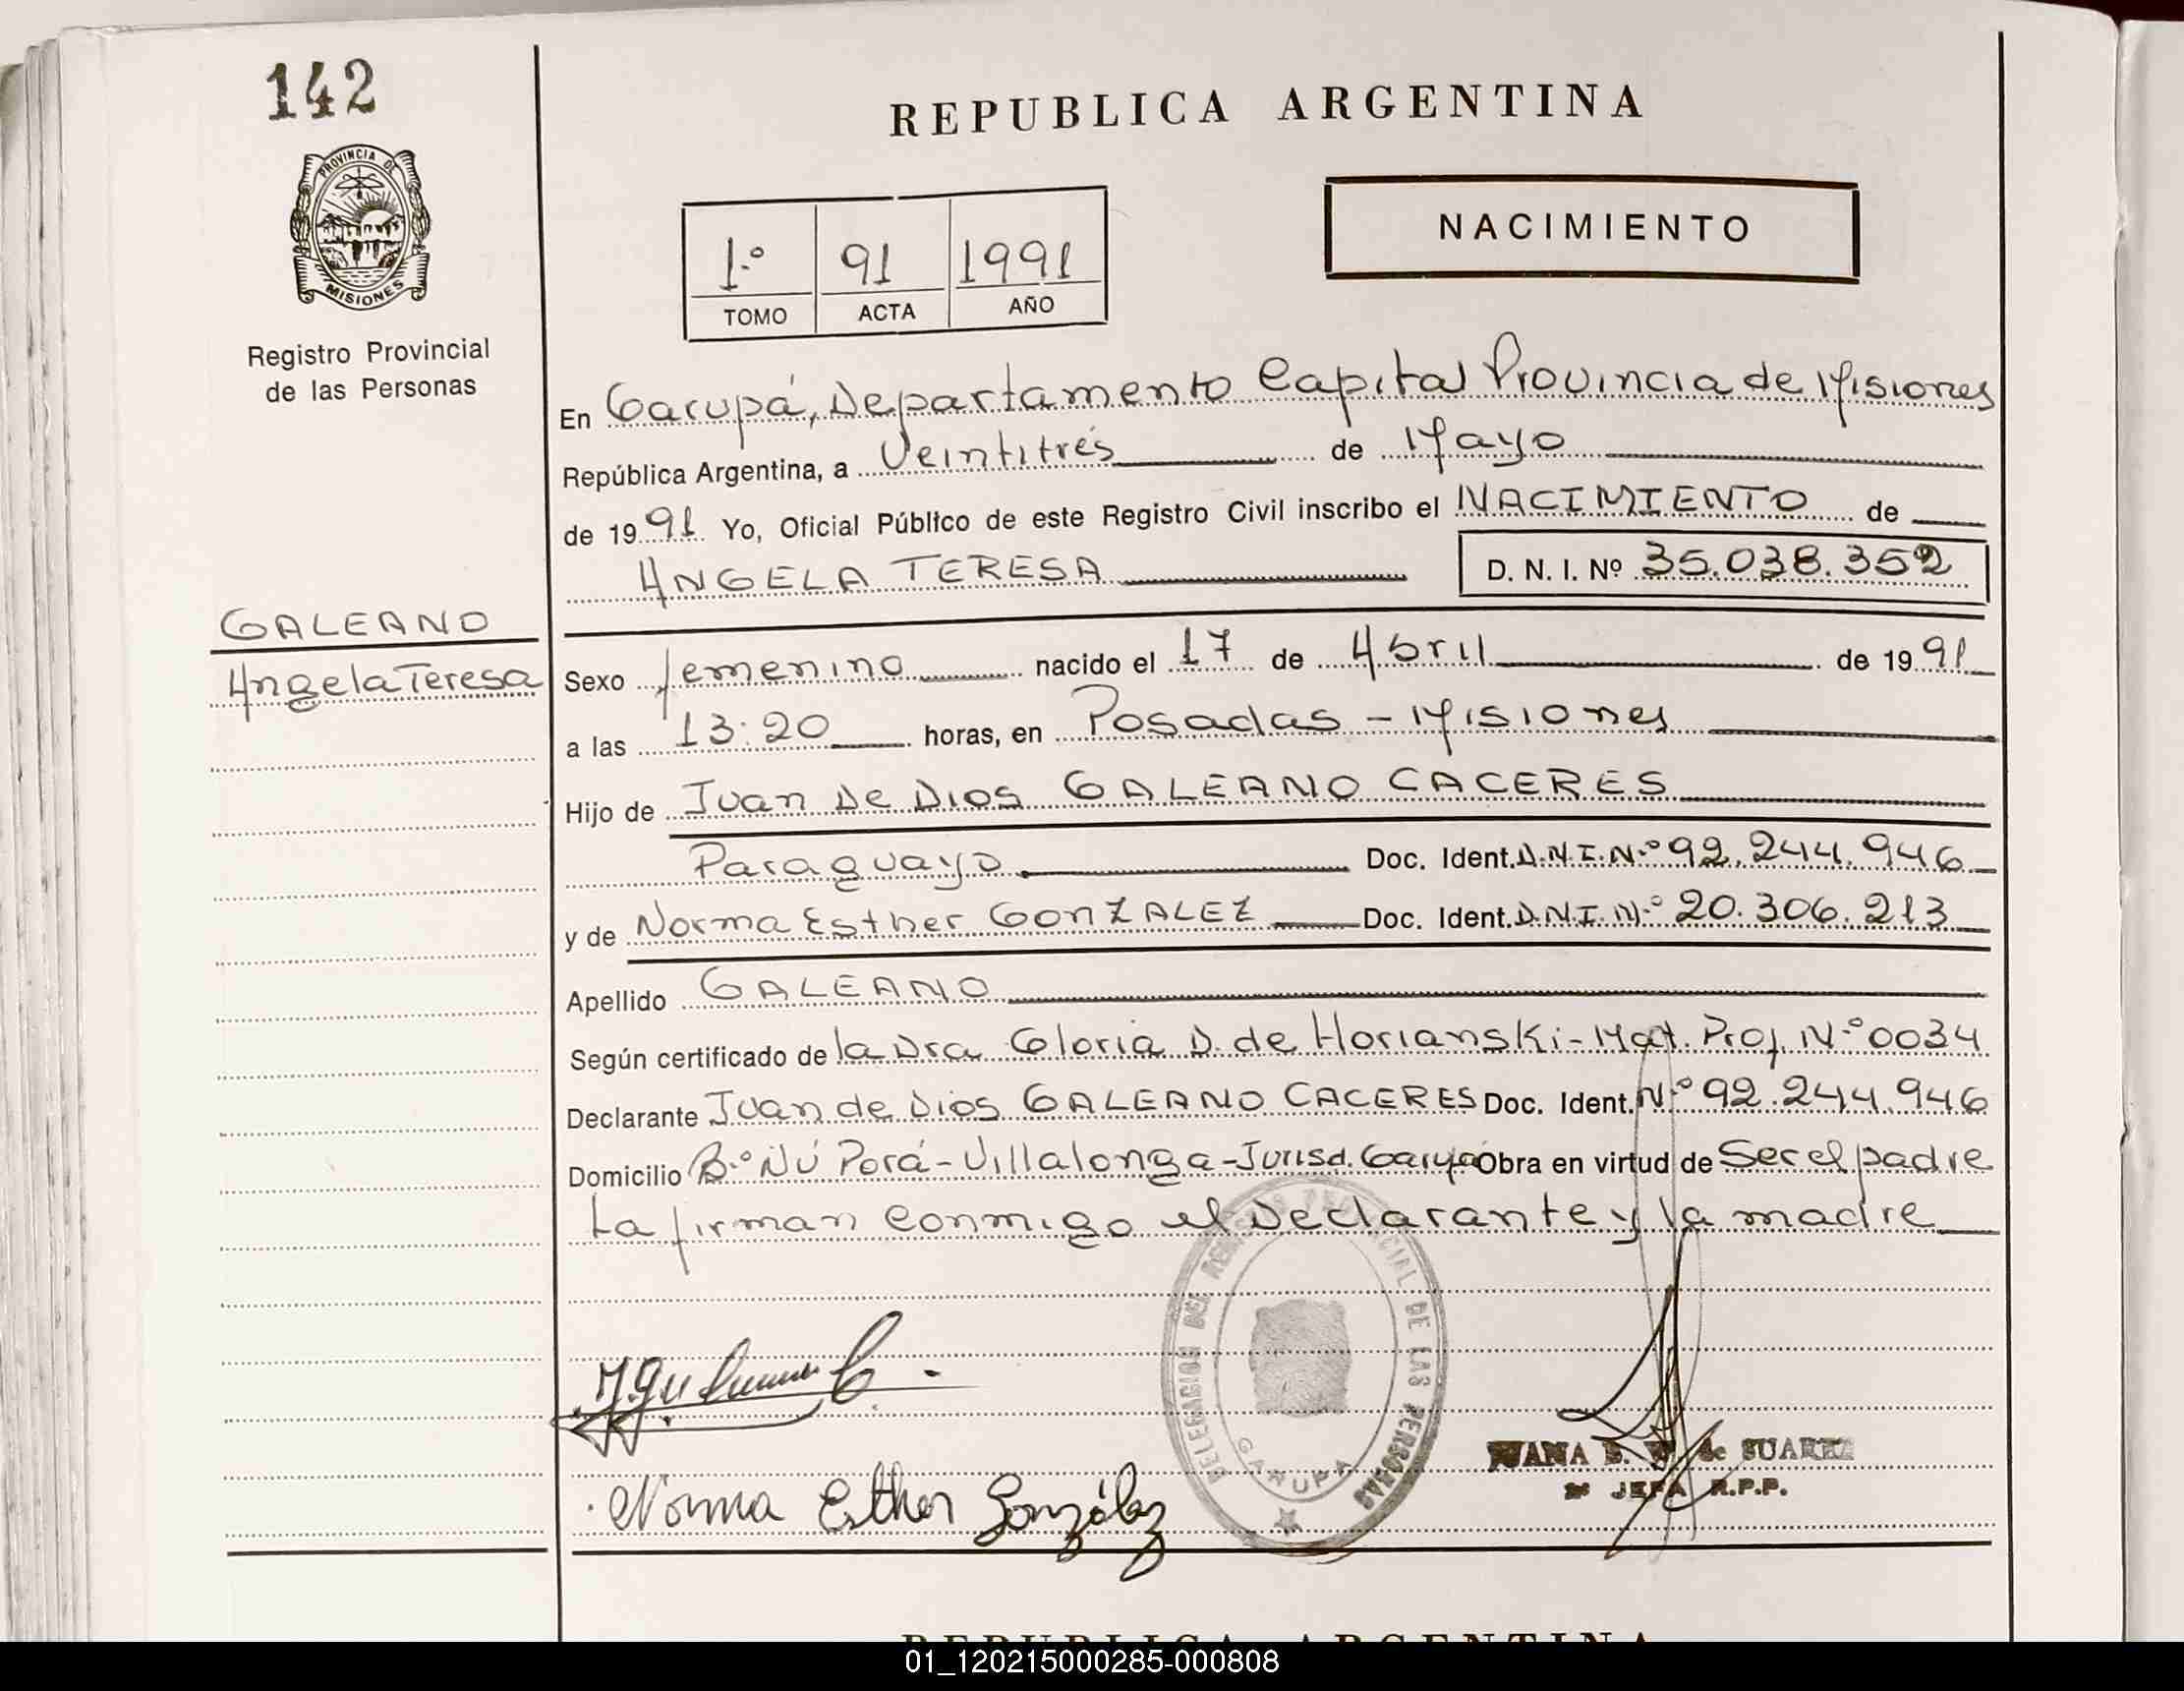 142
PROVINCIA DE
MISIONES
Registro Provincial
de las Personas
REPUBLICA ARGENTINA
NACIMIENTO
1.º 91 1991
TOMO ACTA AÑO
En Garupá, Departamento Capital Provincia de Misiones
República Argentina, a Veintitrés de Mayo
de 1991 Yo, Oficial Público de este Registro Civil inscribo el NACIMIENTO de
ANGELA TERESA D. N. I. Nº 35.038.352
GALEANO
Angela Teresa
Sexo femenino nacido el 17 de Abril de 1991
a las 13:20 horas, en Posadas - Misiones
Hijo de Juan De Dios GALEANO CACERES
Paraguayo Doc. Ident. D.N.I.N.º 92.244.946
y de Norma Esther GONZALEZ Doc. Ident. D.N.I.N.º 20.306.213
Apellido GALEANO
Según certificado de la Dra Gloria D. de Horianski - Mat. Prof. N.º 0034
Declarante Juan de Dios GALEANO CACERES Doc. Ident. N.º 92.244.946
Domicilio B.º Ñú Porá - Villalonga - Jurisd. Garupá Obra en virtud de Ser el padre
La firman conmigo el Declarante y la madre
DELEGACION DEL REGISTRO PROVINCIAL DE LAS PERSONAS
GARUPA
JUANA de SUAREZ
JEFA R.P.P.
Norma Esther González
REPUBLICA ARGENTINA
01_120215000285-000808